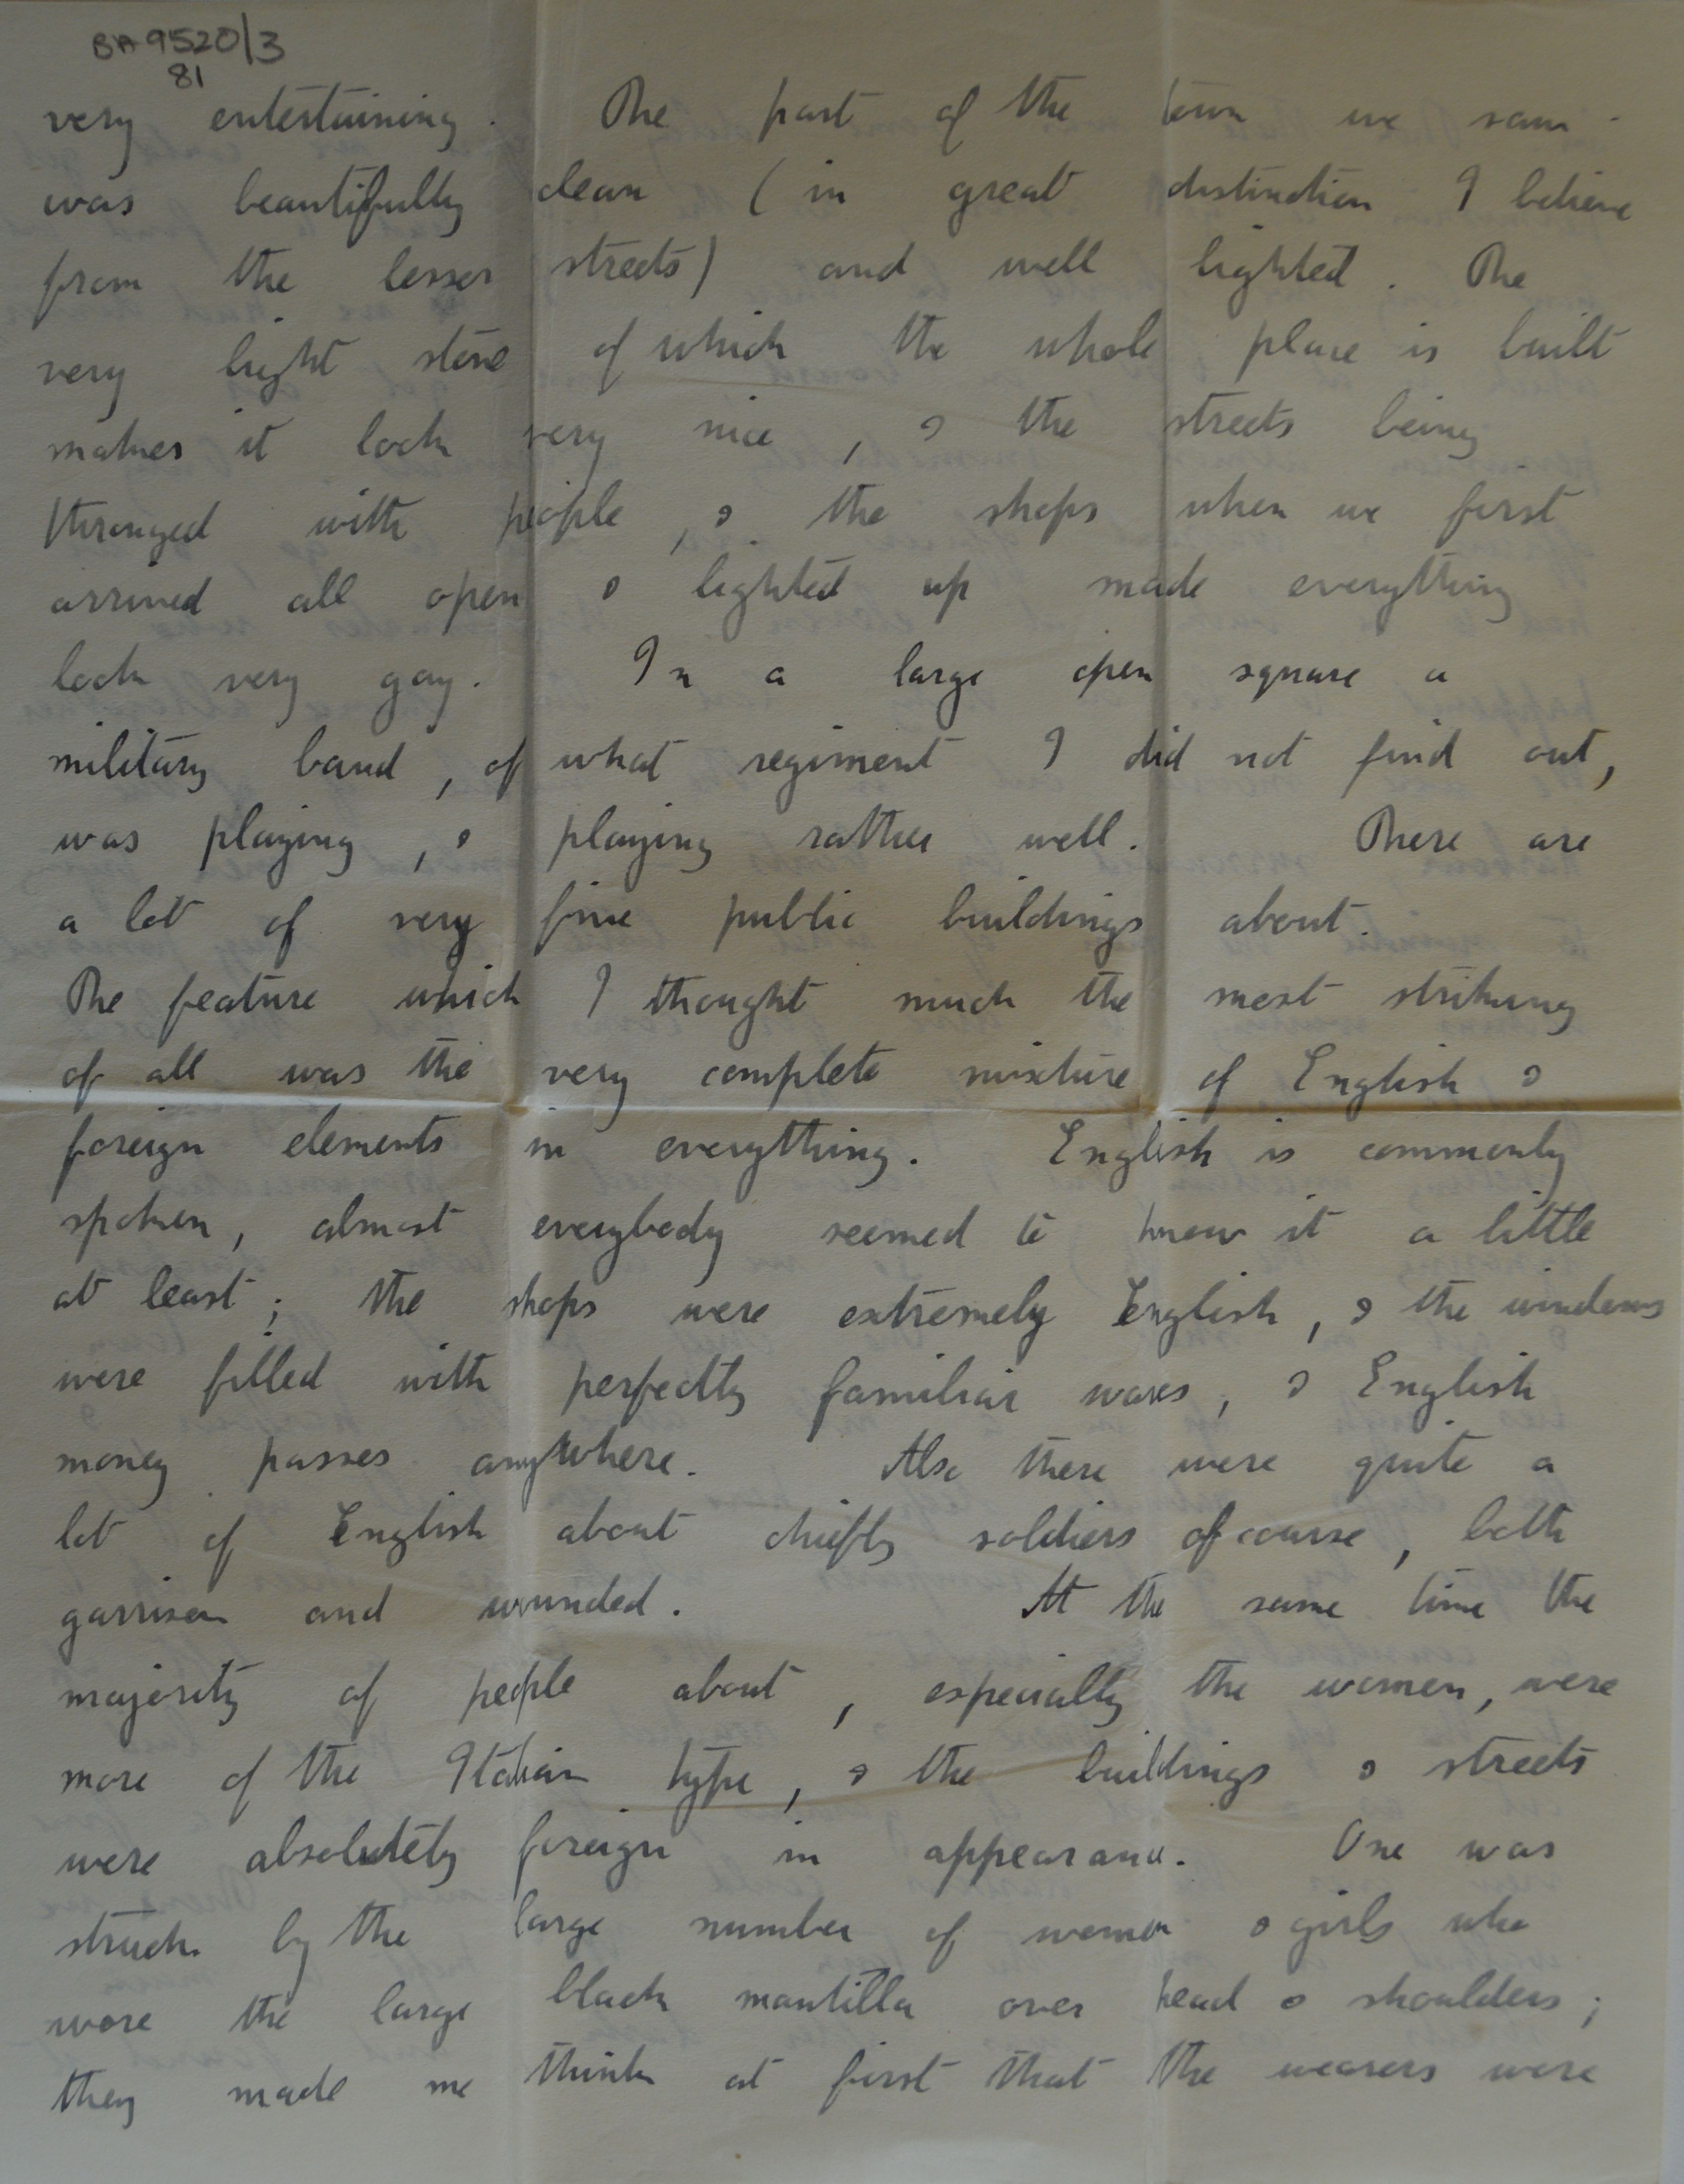 BA 9520/3
81
very entertaining. The part of the town we saw
was beautifully clean (in great distinction I believe
from the lesser streets) and well lighted. The
very light stone of which the whole place is built
makes it look very nice, & the streets being
thronged with people, & the shops when we first
arrived all open & lighted up made everything
look very gay. In a large open square a
military band, of what regiment I did not find out,
was playing, & playing rather well. There are
a lot of very fine public buildings about.
The feature which I thought much the most striking
of all was the very complete mixture of English &
foreign elements in everything. English is commonly
spoken, almost everybody seemed to know it a little
at least; the shops were extremely English, & the windows
were filled with perfectly familiar wares, & English
money passes anywhere. Also there were quite a
lot of English about chiefly soldiers of course, both
garrison and wounded. At the same time the
majority of people about, especially the women, were
more of the Italian type, & the buildings & streets
were absolutely foreign in appearance. One was
struck by the large number of women & girls who
wore the large black mantilla over head & shoulders;
they made me think at first that the wearers were